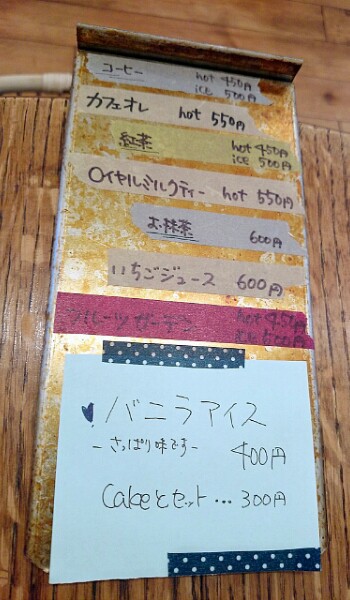 コーヒー hot 450円
ice 500円
カフェオレ hot 550円
紅茶 hot 450円
ice 500円
ロイヤルミルクティー hot 550円
お抹茶 600円
いちごジュース 600円
フルーツガーデン hot 450円
ice 500円
バニラアイス
-さっぱり味です- 400円
Cakeとセット… 300円